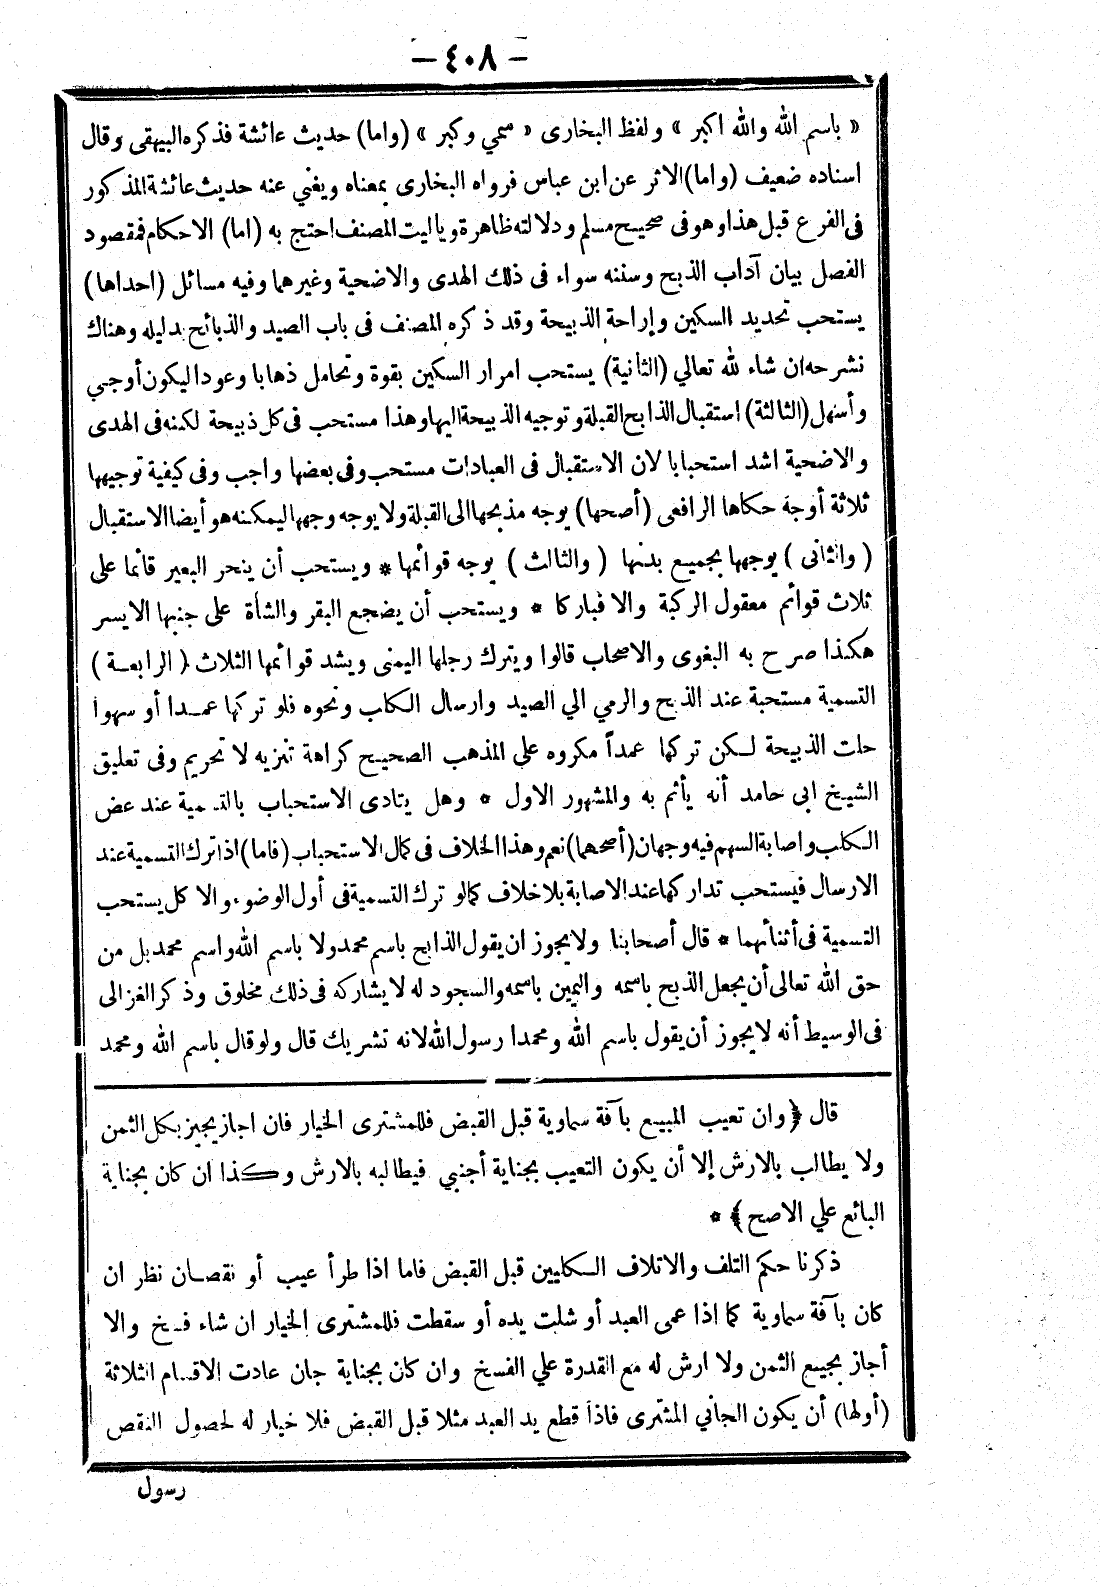 — ٤٠٨ —
« باسم الله والله اكبر » ولفظ البخارى « سمي وكبر » (واما) حديث عائشة فذكره البيهقى وقال
اسناده ضعيف (واما) الاثر عن ابن عباس فرواه البخارى بمعناه ويغني عنه حديث عائشة المذكور
فى الفرع قبل هذا وهو فى صحيح مسلم ودلالته ظاهرة وياليت المصنف احتج به (اما) الاحكام فمقصود
الفصل بيان آداب الذبح وسننه سواء فى ذلك الهدى والاضحية وغيرهما وفيه مسائل (احداها)
يستحب تحديد السكين وإراحة الذبيحة وقد ذكره المصنف فى باب الصيد والذبائح بدليله وهناك
نشرحه ان شاء لله تعالي (الثانية) يستحب امرار السكين بقوة وتحامل ذهابا وعودا ليكون أوجي
وأسهل (الثالثة) استقبال الذابح القبلة وتوجيه الذبيحة اليها وهذا مستحب فى كل ذبيحة لكنه فى الهدى
والاضحية اشد استحبابا لان الاستقبال فى العبادات مستحب وفى بعضها واجب وفى كيفية توجيهها
ثلاثة أوجه حكاها الرافعى (أصحها) يوجه مذبحها الى القبلة ولا يوجه وجهها ليمكنه هو أيضا الاستقبال
( والثانى ) يوجهها بجميع بدنها ( والثالث ) يوجه قوائمها * ويستحب أن ينحر البعير قائما على
ثلاث قوائم معقول الركبة والا فباركا * ويستحب أن يضجع البقر والشأة على جنبها الايسر
هكذا صرح به البغوى والاصحاب قالوا ويترك رجلها اليمنى ويشد قوائمها الثلاث ( الرابعة )
التسمية مستحبة عند الذبح والرمي الي الصيد وارسال الكلب ونحوه فلو تركها عمدا أو سهوا
حلت الذبيحة لكن تركها عمداً مكروه علي المذهب الصحيح كراهة تنزيه لا تحريم وفى تعليق
الشيخ ابى حامد أنه يأثم به والمشهور الاول * وهل يتادى الاستحباب بالتسمية عند عض
الكلب واصابة السهم فيه وجهان (أصحهما) نعم وهذا الخلاف فى كمال الاستحباب (فاما) اذا ترك التسمية عند
الارسال فيستحب تداركها عند الاصابة بلا خلاف كمالو ترك التسمية فى أول الوضوء والاكل يستحب
التسمية فى أثنائهما * قال أصحابنا ولا يجوز ان يقول الذابح باسم محمد ولا باسم الله واسم محمد بل من
حق الله تعالى أن يجعل الذبح باسمه واليمين باسمه والسجود له لا يشاركه فى ذلك مخلوق وذكر الغزالى
فى الوسيط أنه لا يجوز أن يقول باسم الله ومحمدا رسول الله لانه تشريك قال ولو قال باسم الله ومحمد
قال ﴿ وان تعيب المبيع بآفة سماوية قبل القبض فللمشترى الخيار فان اجاز يجيز بكل الثمن
ولا يطالب بالارش إلا أن يكون التعيب بجناية أجنبي فيطالبه بالارش وكذا ان كان بجناية
البائع علي الاصح ﴾ *
ذكرنا حكم التلف والاتلاف الكليين قبل القبض فاما اذا طرأ عيب أو نقصان نظر ان
كان بآفة سماوية كما اذا عمى العبد أو شلت يده أو سقطت فللمشترى الخيار ان شاء فسخ والا
أجاز بجميع الثمن ولا ارش له مع القدرة علي الفسخ وان كان بجناية جان عادت الاقسام الثلاثة
(أولها) أن يكون الجاني المشترى فاذا قطع يد العبد مثلا قبل القبض فلا خيار له لحصول النقص
رسول